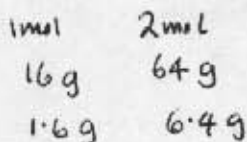 1mol 2mol
16 g 64 g
1.6 g 6.4 g